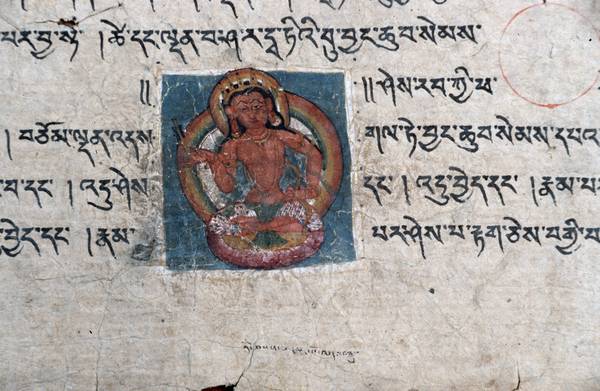 པར་བྱ་སྟེ་ །ཚེ་དང་ལྡན་བ་ཤ་ར་དྭ་ཏིའི་བུ་བྱང་ཆུབ་སེམས་
༎ ༎ཤེས་རབ་ཀྱི་ཕ་
། བཅོམ་ལྡན་འདས་ གལ་ཏེ་བྱང་ཆུབ་སེམས་དཔའ་
བ་དང་ ། འདུ་ཤེས དང་ ། འདུ་བྱེད་དང་ ། རྣམ་པ
བྱེད་དང་ །རྣམ་ པར་ཤེས་པ་རྟག་ཅེས་བགྱི་བ